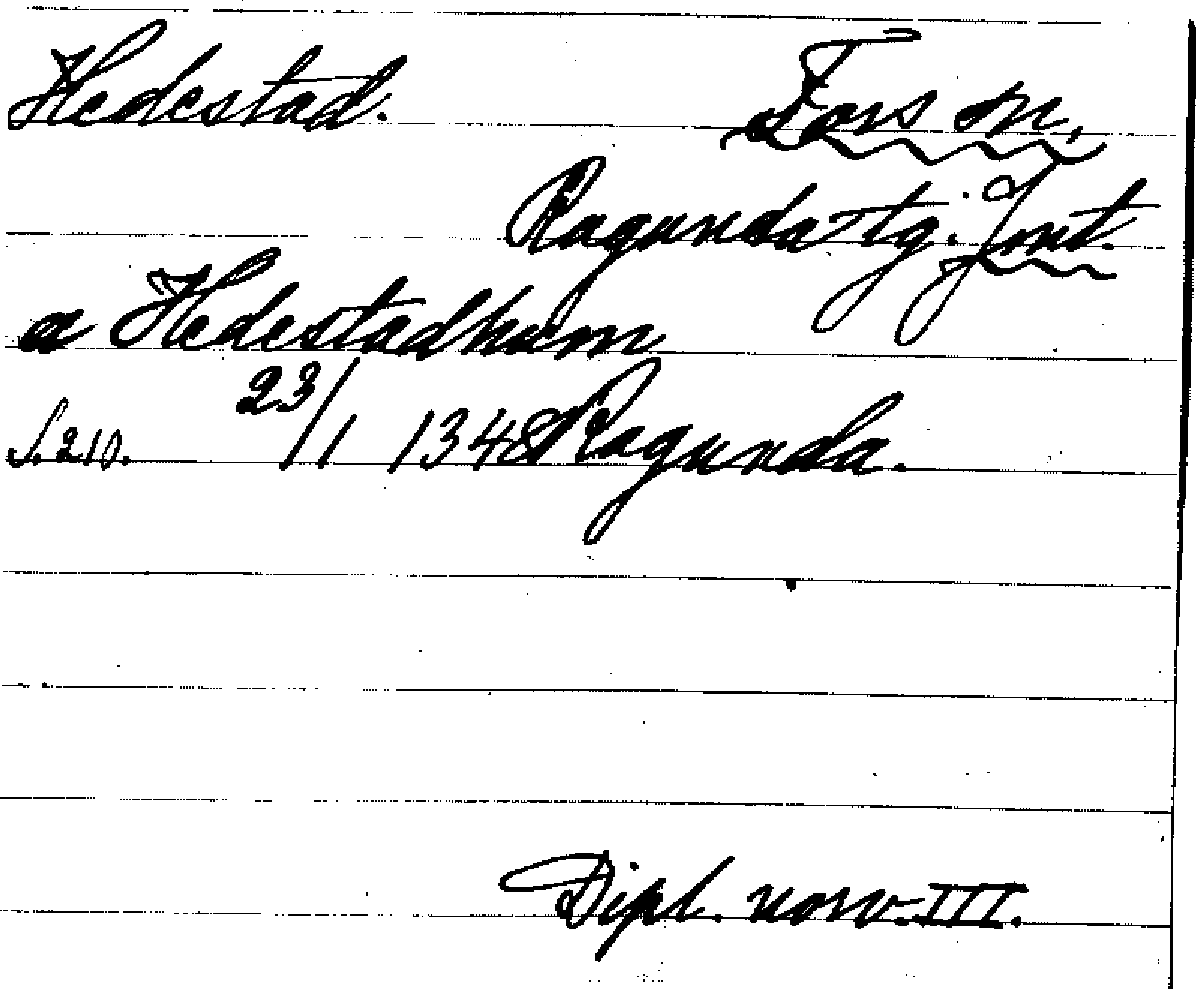 Hedestad. Fors sn,
Ragunda tg. Jmt.
a Hedestadhum
S. 210. 23/1 1348 Ragunda.
Dipl. norv. III.